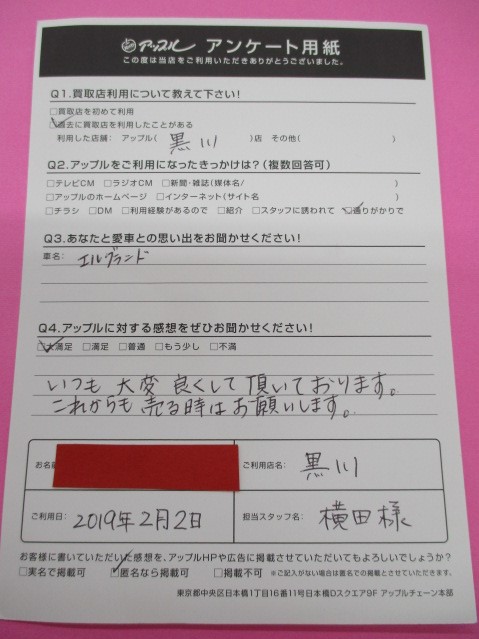 アップル アンケート用紙
この度は当店をご利用いただきありがとうございました。
Q1.買取店利用について教えて下さい!
□買取店を初めて利用
☑過去に買取店を利用したことがある
利用した店舗: アップル( 黒川 )店 その他( )
Q2.アップルをご利用になったきっかけは?(複数回答可)
□テレビCM □ラジオCM □新聞・雑誌(媒体名/ )
□アップルのホームページ □インターネット(サイト名 )
□チラシ □DM □利用経験があるので □紹介 □スタッフに誘われて ☑通りがかりで
Q3.あなたと愛車との思い出をお聞かせください!
車名: エルグランド
Q4.アップルに対する感想をぜひお聞かせください!
☑大満足 □満足 □普通 □もう少し □不満
いつも大変良くして頂いております。
これからも売る時はお願いします。
お名
ご利用店名: 黒川
ご利用日: 2019年2月2日
担当スタッフ名: 横田様
お客様に書いていただいた感想を、アップルHPや広告に掲載させていただいてもよろしいでしょうか?
□実名で掲載可 ☑匿名なら掲載可 □掲載不可 ※ご記入がない場合は匿名での掲載とさせていただきます。
東京都中央区日本橋1丁目16番11号日本橋Dスクエア9F アップルチェーン本部